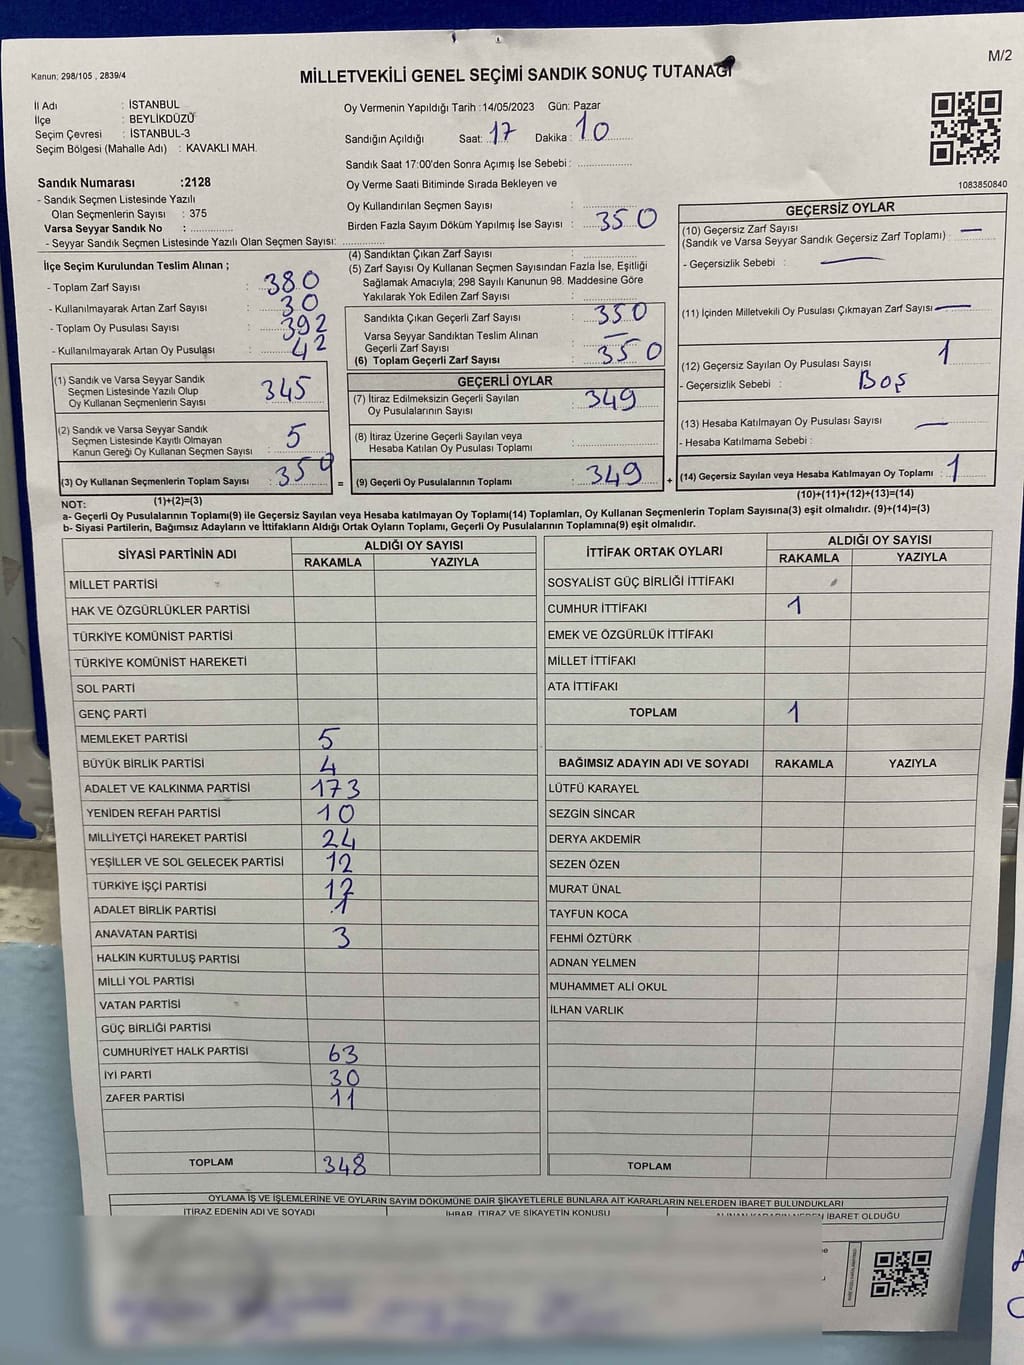 M/2
Kanun: 298/105 , 2839/4
MİLLETVEKİLİ GENEL SEÇİMİ SANDIK SONUÇ TUTANAĞI
İl Adı : İSTANBUL
İlçe : BEYLİKDÜZÜ
Seçim Çevresi : İSTANBUL-3
Seçim Bölgesi (Mahalle Adı) : KAVAKLI MAH.
Sandık Numarası :2128
- Sandık Seçmen Listesinde Yazılı
Olan Seçmenlerin Sayısı : 375
Varsa Seyyar Sandık No : ..............
- Seyyar Sandık Seçmen Listesinde Yazılı Olan Seçmen Sayısı: ..............
Oy Vermenin Yapıldığı Tarih :14/05/2023 Gün: Pazar
Sandığın Açıldığı Saat: 17 Dakika : 10
Sandık Saat 17:00'den Sonra Açımış İse Sebebi : ..............
Oy Verme Saati Bitiminde Sırada Bekleyen ve
Oy Kullandırılan Seçmen Sayısı : ..............
Birden Fazla Sayım Döküm Yapılmış İse Sayısı : 350
1083850840
İlçe Seçim Kurulundan Teslim Alınan ;
- Toplam Zarf Sayısı : 380
- Kullanılmayarak Artan Zarf Sayısı : 30
- Toplam Oy Pusulası Sayısı : 392
- Kullanılmayarak Artan Oy Pusulası : 42
(1) Sandık ve Varsa Seyyar Sandık
Seçmen Listesinde Yazılı Olup
Oy Kullanan Seçmenlerin Sayısı : 345
(2) Sandık ve Varsa Seyyar Sandık
Seçmen Listesinde Kayıtlı Olmayan
Kanun Gereği Oy Kullanan Seçmen Sayısı : 5
(3) Oy Kullanan Seçmenlerin Toplam Sayısı : 350
(1)+(2)=(3)
(4) Sandıktan Çıkan Zarf Sayısı : ..............
(5) Zarf Sayısı Oy Kullanan Seçmen Sayısından Fazla İse, Eşitliği
Sağlamak Amacıyla; 298 Sayılı Kanunun 98. Maddesine Göre
Yakılarak Yok Edilen Zarf Sayısı : ..............
Sandıkta Çıkan Geçerli Zarf Sayısı : 350
Varsa Seyyar Sandıktan Teslim Alınan
Geçerli Zarf Sayısı : —
(6) Toplam Geçerli Zarf Sayısı : 350
GEÇERLİ OYLAR
(7) İtiraz Edilmeksizin Geçerli Sayılan
Oy Pusulalarının Sayısı : 349
(8) İtiraz Üzerine Geçerli Sayılan veya
Hesaba Katılan Oy Pusulası Toplamı : ..............
= (9) Geçerli Oy Pusulalarının Toplamı : 349 +
GEÇERSİZ OYLAR
(10) Geçersiz Zarf Sayısı
(Sandık ve Varsa Seyyar Sandık Geçersiz Zarf Toplamı) : —
- Geçersizlik Sebebi : —
(11) İçinden Milletvekili Oy Pusulası Çıkmayan Zarf Sayısı —
(12) Geçersiz Sayılan Oy Pusulası Sayısı : 1
- Geçersizlik Sebebi : BOŞ
(13) Hesaba Katılmayan Oy Pusulası Sayısı : —
- Hesaba Katılmama Sebebi :
(14) Geçersiz Sayılan veya Hesaba Katılmayan Oy Toplamı : 1
(10)+(11)+(12)+(13)=(14)
NOT:
a- Geçerli Oy Pusulalarının Toplamı(9) ile Geçersiz Sayılan veya Hesaba Katılmayan Oy Toplamı(14) Toplamları, Oy Kullanan Seçmenlerin Toplam Sayısına(3) eşit olmalıdır. (9)+(14)=(3)
b- Siyasi Partilerin, Bağımsız Adayların ve İttifakların Aldığı Ortak Oyların Toplamı, Geçerli Oy Pusulalarının Toplamına(9) eşit olmalıdır.
SİYASİ PARTİNİN ADI ALDIĞI OY SAYISI
RAKAMLA YAZIYLA
MİLLET PARTİSİ
HAK VE ÖZGÜRLÜKLER PARTİSİ
TÜRKİYE KOMÜNİST PARTİSİ
TÜRKİYE KOMÜNİST HAREKETİ
SOL PARTİ
GENÇ PARTİ
MEMLEKET PARTİSİ 5
BÜYÜK BİRLİK PARTİSİ 4
ADALET VE KALKINMA PARTİSİ 173
YENİDEN REFAH PARTİSİ 10
MİLLİYETÇİ HAREKET PARTİSİ 24
YEŞİLLER VE SOL GELECEK PARTİSİ 12
TÜRKİYE İŞÇİ PARTİSİ 12
ADALET BİRLİK PARTİSİ 1
ANAVATAN PARTİSİ 3
HALKIN KURTULUŞ PARTİSİ
MİLLİ YOL PARTİSİ
VATAN PARTİSİ
GÜÇ BİRLİĞİ PARTİSİ
CUMHURİYET HALK PARTİSİ 63
İYİ PARTİ 30
ZAFER PARTİSİ 11
TOPLAM 348
İTTİFAK ORTAK OYLARI ALDIĞI OY SAYISI
RAKAMLA YAZIYLA
SOSYALİST GÜÇ BİRLİĞİ İTTİFAKI
CUMHUR İTTİFAKI 1
EMEK VE ÖZGÜRLÜK İTTİFAKI
MİLLET İTTİFAKI
ATA İTTİFAKI
TOPLAM 1
BAĞIMSIZ ADAYIN ADI VE SOYADI RAKAMLA YAZIYLA
LÜTFÜ KARAYEL
SEZGİN SİNCAR
DERYA AKDEMİR
SEZEN ÖZEN
MURAT ÜNAL
TAYFUN KOCA
FEHMİ ÖZTÜRK
ADNAN YELMEN
MUHAMMET ALİ OKUL
İLHAN VARLIK
TOPLAM
OYLAMA İŞ VE İŞLEMLERİNE VE OYLARIN SAYIM DÖKÜMÜNE DAİR ŞİKAYETLERLE BUNLARA AİT KARARLARIN NELERDEN İBARET BULUNDUKLARI
İTİRAZ EDENİN ADI VE SOYADI İHBAR, İTİRAZ VE ŞİKAYETİN KONUSU ALINAN KARARIN NEDEN İBARET OLDUĞU